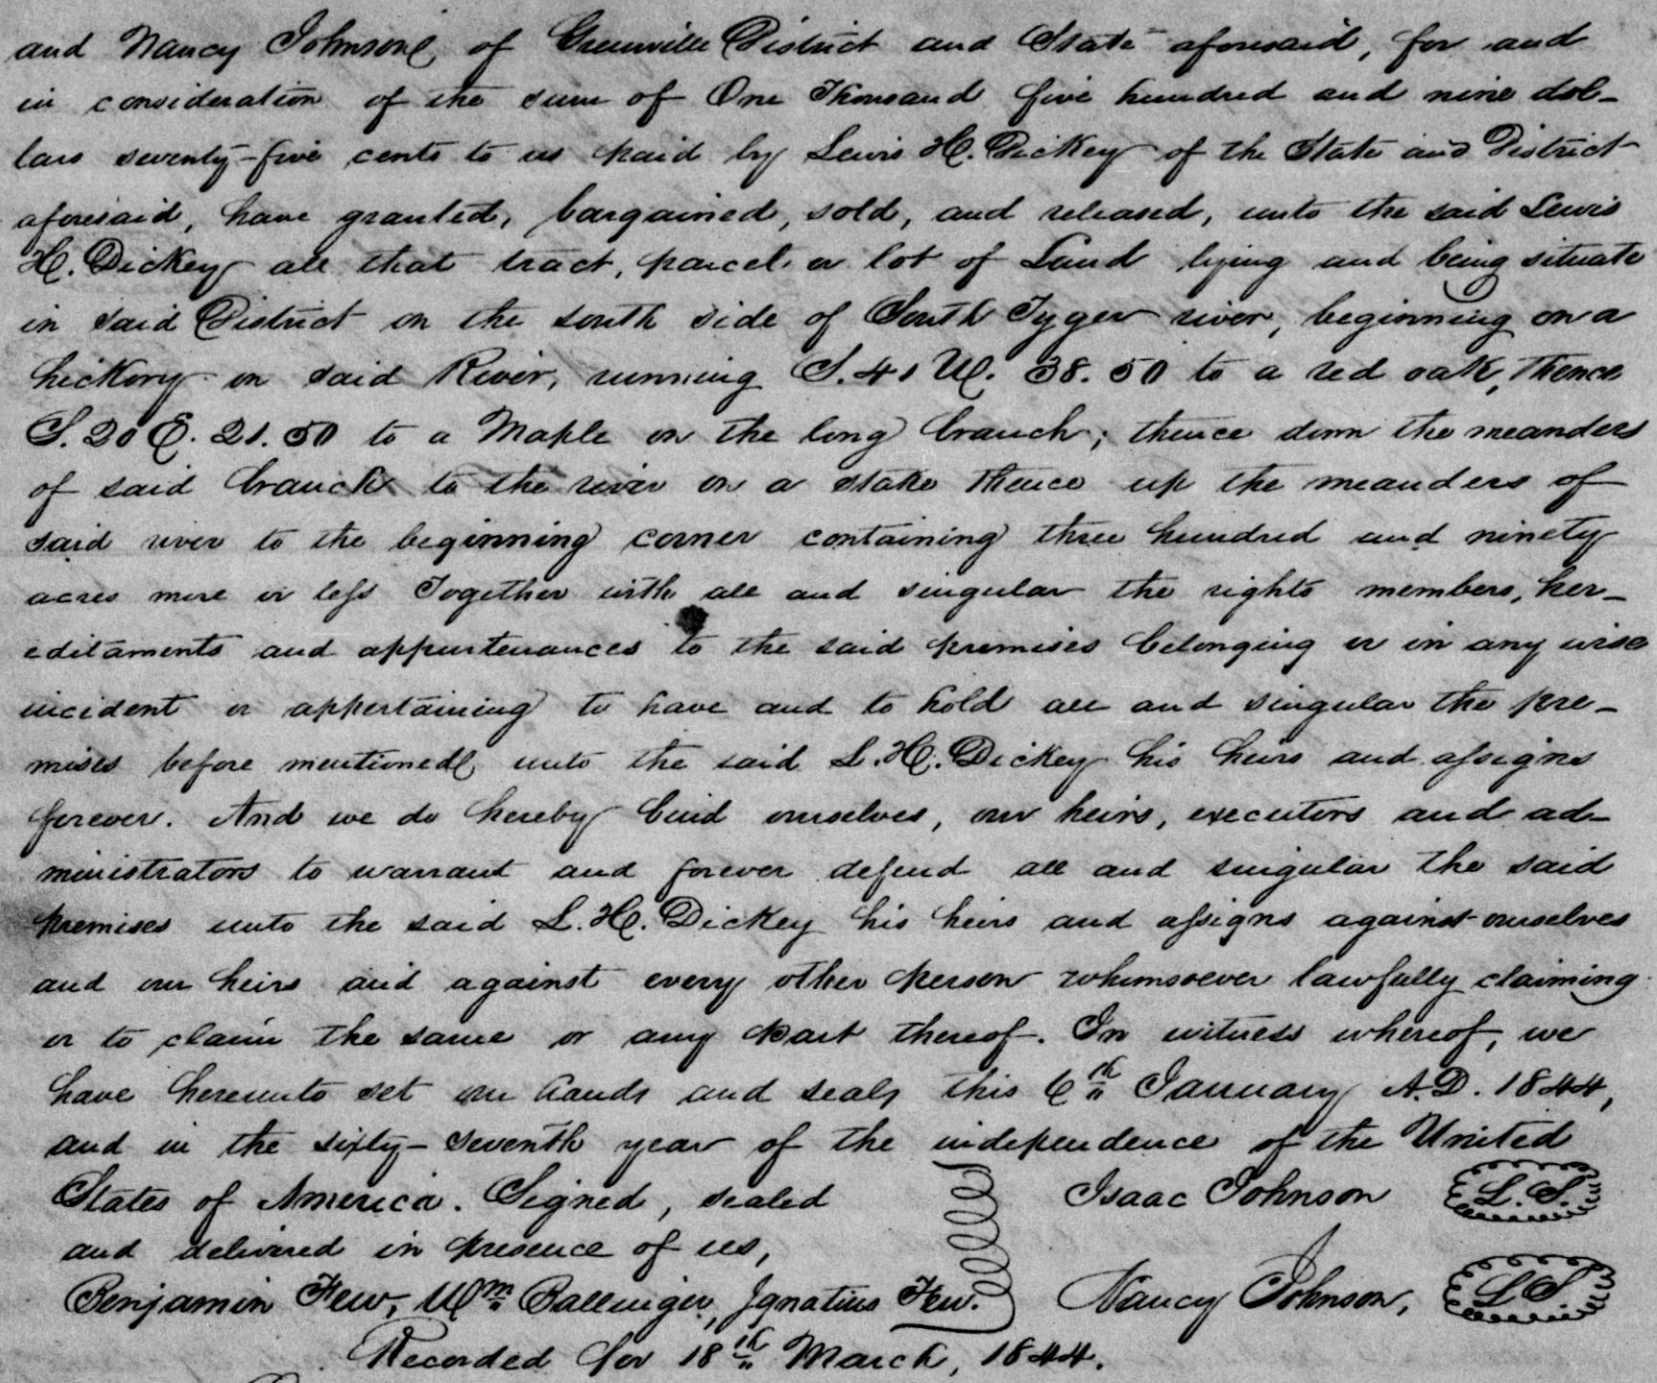 and Nancy Johnson of Greenville District and State aforesaid, for and
in consideration of the sum of One Thousand five hundred and nine dol-
lars seventy-five cents to us paid by Lewis H. Dickey of the State and District
aforesaid, have granted, bargained, sold, and released, unto the said Lewis
H. Dickey all that tract, parcel or lot of Land lying and being situate
in said District on the south side of South Tyger river, beginning on a
hickory on said River, running S. 41 W. 38.50 to a red oak, Thence
S. 20 E. 21.50 to a Maple on the long branch; thence down the meanders
of said branch to the river on a stake thence up the meanders of
said river to the beginning corner containing three hundred and ninety
acres more or less Together with all and singular the rights members, her-
editaments and appurtenances to the said premises belonging or in any wise
incident or appertaining to have and to hold all and singular the pre-
mises before mentioned unto the said L. H. Dickey his heirs and assigns
forever. And we do hereby bind ourselves, our heirs, executors and ad-
ministrators to warrant and forever defend all and singular the said
premises unto the said L. H. Dickey his heirs and assigns against ourselves
and our heirs and against every other person whomsoever lawfully claiming
or to claim the same or any part thereof. In witness whereof, we
have hereunto set our hands and seals this 6th January A.D. 1844,
and in the sixty-seventh year of the independence of the United
States of America. Signed, sealed
and delivered in presence of us,
Isaac Johnson L. S.
Benjamin Few, Wm Ballenger, Ignatius Few. Nancy Johnson, L S
Recorded for 18th March, 1844.